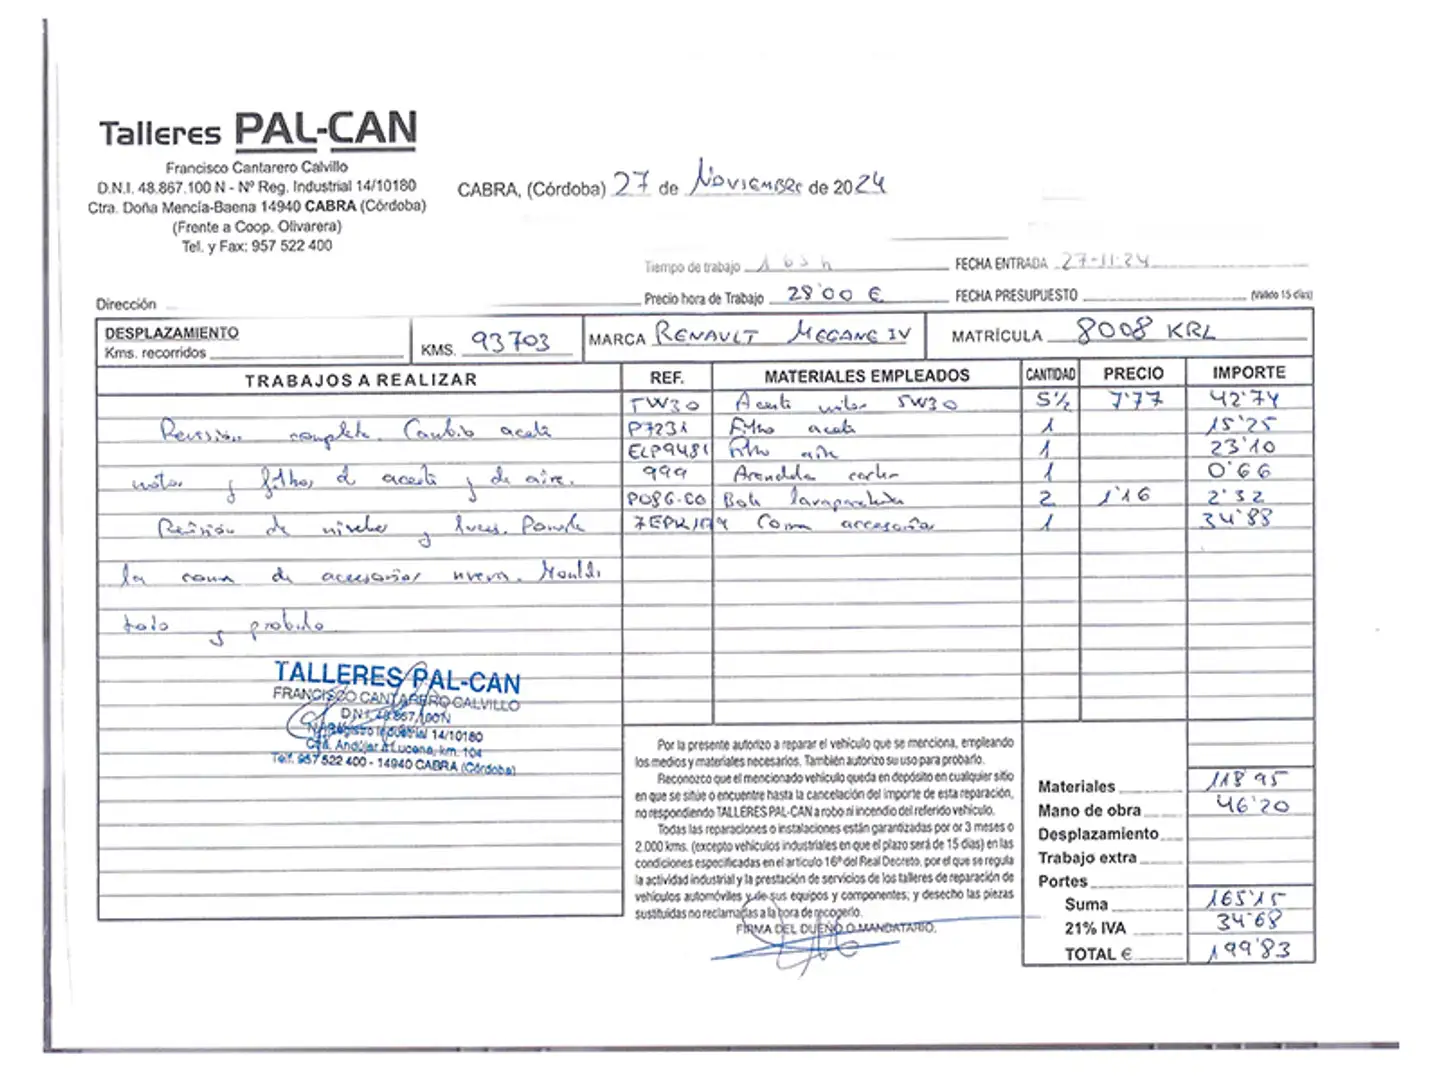 Talleres PAL-CAN
Francisco Cantarero Calvillo
D.N.I. 48.867.100 N - Nº Reg. Industrial 14/10180
Ctra. Doña Mencía-Baena 14940 CABRA (Córdoba)
(Frente a Coop. Olivarera)
Tel. y Fax: 957 522 400
CABRA, (Córdoba) 27 de Noviembre de 2024
Tiempo de trabajo 1 65 h FECHA ENTRADA 27-11-24
Precio hora de Trabajo 28'00 € FECHA PRESUPUESTO (Válido 15 días)
Dirección
DESPLAZAMIENTO
Kms. recorridos
KMS. 93703
MARCA RENAULT MEGANE IV
MATRÍCULA 8008 KRL
TRABAJOS A REALIZAR REF. MATERIALES EMPLEADOS CANTIDAD PRECIO IMPORTE
5W30 Aceite motor 5W30 5½ 7'77 42'74
P7231 Filtro aceite 1 15'25
ELP9481 Filtro aire 1 23'10
999 Arandela carter 1 0'66
P086-CO Bote lavaparabrisas 2 1'16 2'32
Correa accesorios 1 34'88
Revisión completa. Cambio aceite
motor y filtros de aceite y de aire.
Revisión de niveles y luces. Ponerle
la correa de accesorios nueva.
todo y probado
TALLERES PAL-CAN
FRANCISCO CANTARERO CALVILLO
D.N.I. 48.867.100N
Nº Registro Industrial 14/10180
Ctra. Andújar a Lucena, km. 104
Telf. 957 522 400 - 14940 CABRA (Córdoba)
Por la presente autorizo a reparar el vehículo que se menciona, empleando
los medios y materiales necesarios. También autorizo su uso para probarlo.
Reconozco que el mencionado vehículo queda en depósito en cualquier sitio
en que se sitúe o encuentre hasta la cancelación del importe de esta reparación,
no respondiendo TALLERES PAL-CAN a robo ni incendio del referido vehículo.
Todas las reparaciones o instalaciones están garantizadas por or 3 meses o
2.000 kms. (excepto vehículos industriales en que el plazo será de 15 días) en las
condiciones especificadas en el artículo 16º del Real Decreto, por el que se regula
la actividad industrial y la prestación de servicios de los talleres de reparación de
vehículos automóviles y de sus equipos y componentes, y desecho las piezas
sustituidas no reclamadas a la hora de recogerlo.
FIRMA DEL DUEÑO O MANDATARIO.
Materiales 118'95
Mano de obra 46'20
Desplazamiento
Trabajo extra
Portes
Suma 165'15
21% IVA 34'68
TOTAL € 199'83